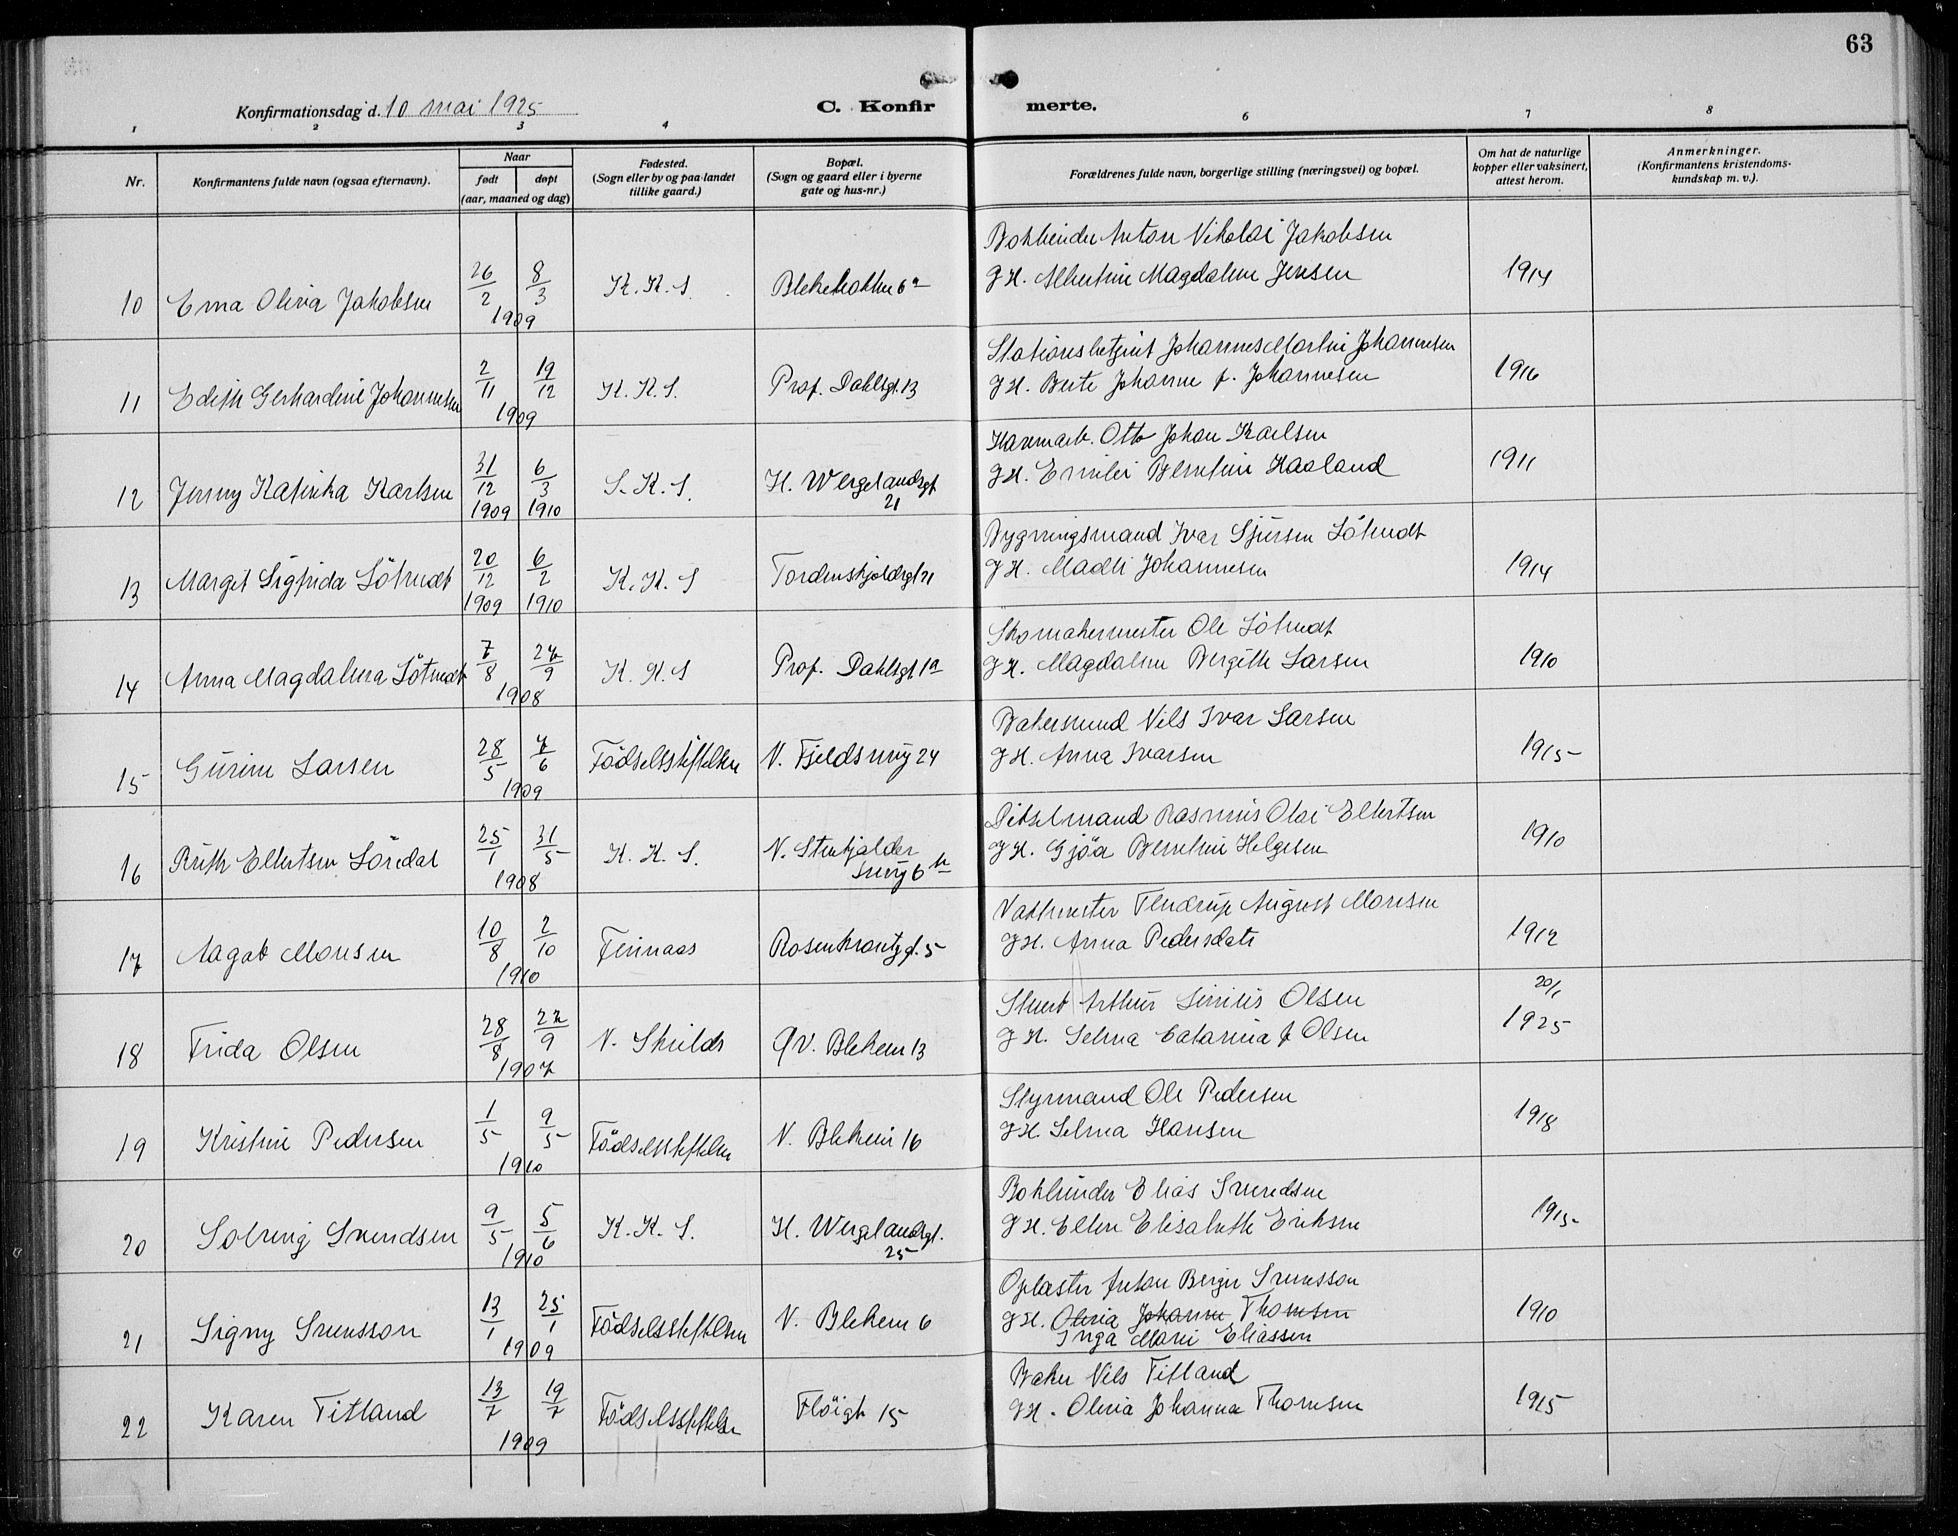 63
Konfirmationsdag d. 10 mai 1925
C. Konfirmerte.
1 2 3 4 6 7 8
Nr.
Konfirmantens fulde navn (ogsaa efternavn).
Naar
født døpt
(aar, maaned og dag)
Fødested.
(Sogn eller by og paa landet
tillike gaard.)
Bopæl.
(Sogn og gaard eller i byerne
gate og hus-nr.)
Forældrenes fulde navn, borgerlige stilling (næringsvei) og bopæl.
Om hat de naturlige
kopper eller vaksinert,
attest herom.
Anmerkninger.
(Konfirmantens kristendoms-
kundskap m. v.).
Bokbinder Anton Nikolai Jakobsen
10 Erna Olivia Jakobsen 26/2 8/3 1909 K. K. S. 6a g H. Albertine Magdalene Jensen 1914
Johannes Martin Johannesen
11 Edith Gerhardine Johannesen 2/11 19/12 1909 K. K. S. Prof. Dahlsgt. 13 g H. Berte Johanne f. Johannesen 1916
Havnearb. Otto Johan Karlsen
12 Jenny Katinka Karlsen 31/12 1909 6/3 1910 S. K. S. H. Wergelandsgt 21 g H. Emilie Berntine Haaland 1911
Bygningsmand Ivar Sjursen Lötvedt
13 Margit Sigfrida Lötvedt 20/12 1909 6/2 1910 K. K. S Tordenskjoldsgt 21 g H. Madli Johannesen 1914
Skomakermester Ole Lötvedt
14 Anna Magdalena Lötvedt 7/8 27/9 1908 K. K. S Prof. Dahlsgt 1a g H. Magdalene Bergitte Larsen 1910
Bakersvend Nils Ivar Larsen
15 Gurine Larsen 28/5 7/6 1909 Födselsstiftelsen N. Fjeldsmug 24 g H. Anna Ivarsen 1915
Rasmus Olai Ellertsen
16 Ruth Ellertsen Söredal 25/1 31/5 1908 K. K. S. N. Stenkjelder smug 6b g H. Gjöa Berntine Helgesen 1910
Vaktmester Tendrup August Monsen
17 Aagot Monsen 10/8 2/10 1910 Finnaas Rosenkrantzg. 5 g H. Anna Pedersdatr 1912
Stuert Arthur Sinius Olsen 20/1
18 Frida Olsen 28/8 22/9 1907 N. Skulds Öv. Blekem 13 g H. Selma Catarina f Olsen 1925
Styrmand Ole Pedersen
19 Kristine Pedersen 1/5 9/5 1910 Födselsstiftelsen N. Blekem 16 g H. Selma Hansen 1918
Bokbinder Elias Svendsen
20 Solveig Svendsen 9/5 5/6 1910 K. K. S. H. Wergelandsgt. 25 g H. Ellen Elisabeth Eriksen 1915
Oplaster Anton Berger Svensson
21 Signy Svensson 13/1 25/1 1909 Födselsstiftelsen N. Blekem 6 g H. Olivia Johanne Thomsen 1910
Inga Marie Eliassen
Baker Nils Titland
22 Karen Titland 13/7 19/7 1909 Födselsstiftelsen Flöigt 15 g H. Olivia Johanna Thomsen 1915